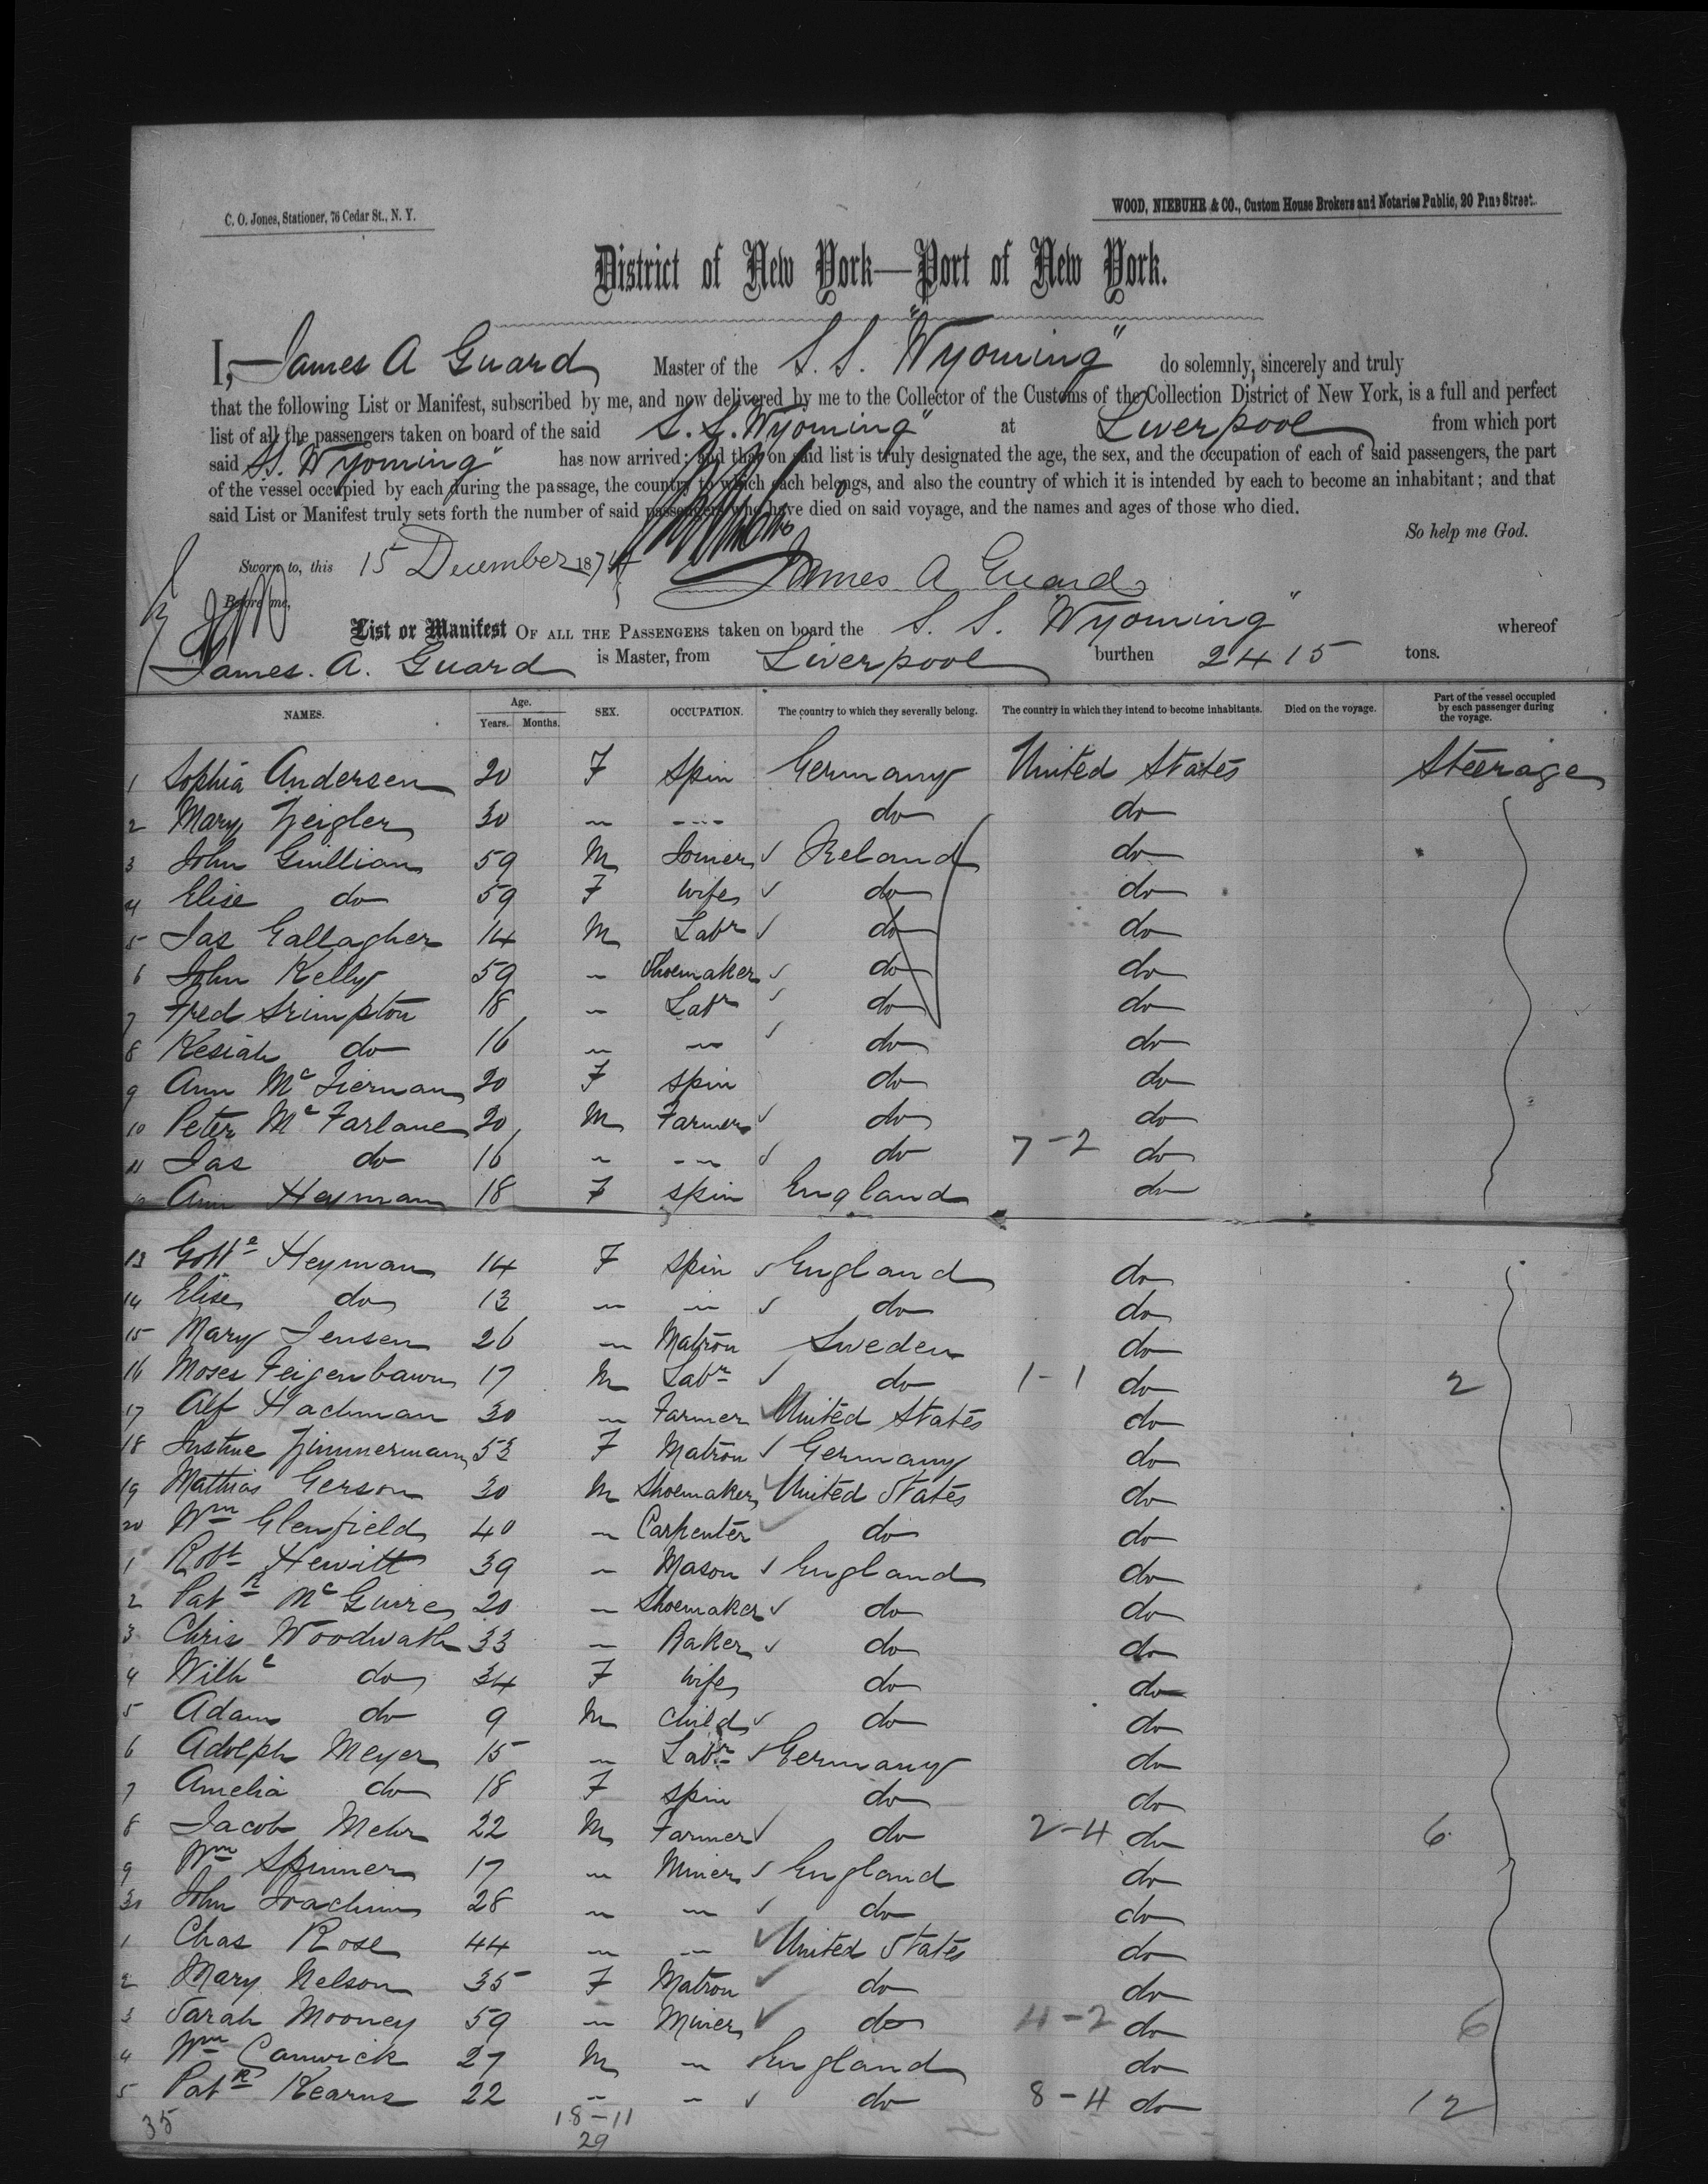 C. O. Jones, Stationer, 76 Cedar St., N. Y.
WOOD, NIEBUHR & CO., Custom House Brokers and Notaries Public, 20 Pine Street.
District of New York—Port of New York.
I, James A Guard Master of the S. S. "Wyoming" do solemnly, sincerely and truly
that the following List or Manifest, subscribed by me, and now delivered by me to the Collector of the Customs of the Collection District of New York, is a full and perfect
list of all the passengers taken on board of the said S. S. Wyoming" at Liverpool from which port
said SS. "Wyoming" has now arrived; and that on said list is truly designated the age, the sex, and the occupation of each of said passengers, the part
of the vessel occupied by each during the passage, the country to which each belongs, and also the country of which it is intended by each to become an inhabitant; and that
said List or Manifest truly sets forth the number of said passengers who have died on said voyage, and the names and ages of those who died.
So help me God.
Sworn to, this 15 December 1874
James A Guard
Before me,
List or Manifest OF ALL THE PASSENGERS taken on board the S. S. "Wyoming" whereof
James. A. Guard is Master, from Liverpool burthen 2415 tons.
NAMES. Age. Years. Months. SEX. OCCUPATION. The country to which they severally belong. The country in which they intend to become inhabitants. Died on the voyage. Part of the vessel occupied by each passenger during the voyage.
1 Sophia Andersen 20 F Spin Germany United States Steerage
2 Mary Zeigler 30 " --- do do
3 John Guillian 59 M Joiner Ireland do
4 Elise do 59 F Wife do do
5 Jas Gallagher 14 M Labr do do
6 John Kelly 59 " Shoemaker do do
7 Fred Srimpton 18 " Labr do do
8 Kesiah do 16 " " do do
9 Ann McTiernan 20 F Spin do do
10 Peter McFarlane 20 M Farmer do do
11 Jas do 16 " -- do 7-2 do
12 Ann Heyman 18 F Spin England do
13 Gotte Heyman 14 F Spin England do
14 Elise do 13 " " do do
15 Mary Jensen 26 " Matron Sweden do
16 Moses Feigenbaum 17 M Labr do 1-1 do 2
17 Alf Hachman 30 " Farmer United States do
18 Justine Zimmerman 53 F Matron Germany do
19 Mathias Gerson 30 M Shoemaker United States do
20 Wm Glenfield 40 " Carpenter do do
1 Robt Hewitt 39 " Mason England do
2 Patk McGuire 20 " Shoemaker do do
3 Chris Woodwath 33 " Baker do do
4 Wilhe do 34 F Wife do do
5 Adam do 9 M Child do do
6 Adolph Meyer 15 " Labr Germany do
7 Amelia do 18 F Spin do do
8 Jacob Mehr 22 M Farmer do 2-4 do 6
9 Wm Spinner 17 " Miner England do
30 John Joachim 28 " " do do
1 Chas Rose 44 " -- United States do
2 Mary Nelson 35 F Matron do do
3 Sarah Mooney 59 " Miner do 4-2 do 6
4 Wm Canwick 27 M " England do
5 Patk Kearns 22 " " do 8-4 do 12
35 18-11
29